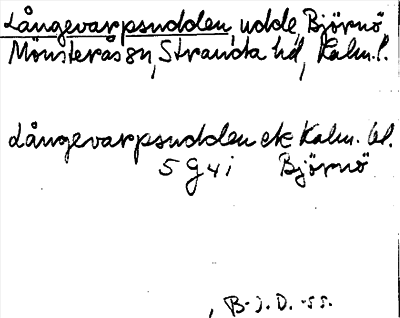 Långevarpsudden, udde, Björnö
Mönsterås sn, Stranda hd, Kalm. l.
Långevarpsudden ek Kalm. bl.
5 G 4 i Björnö
B-J. D. -55.